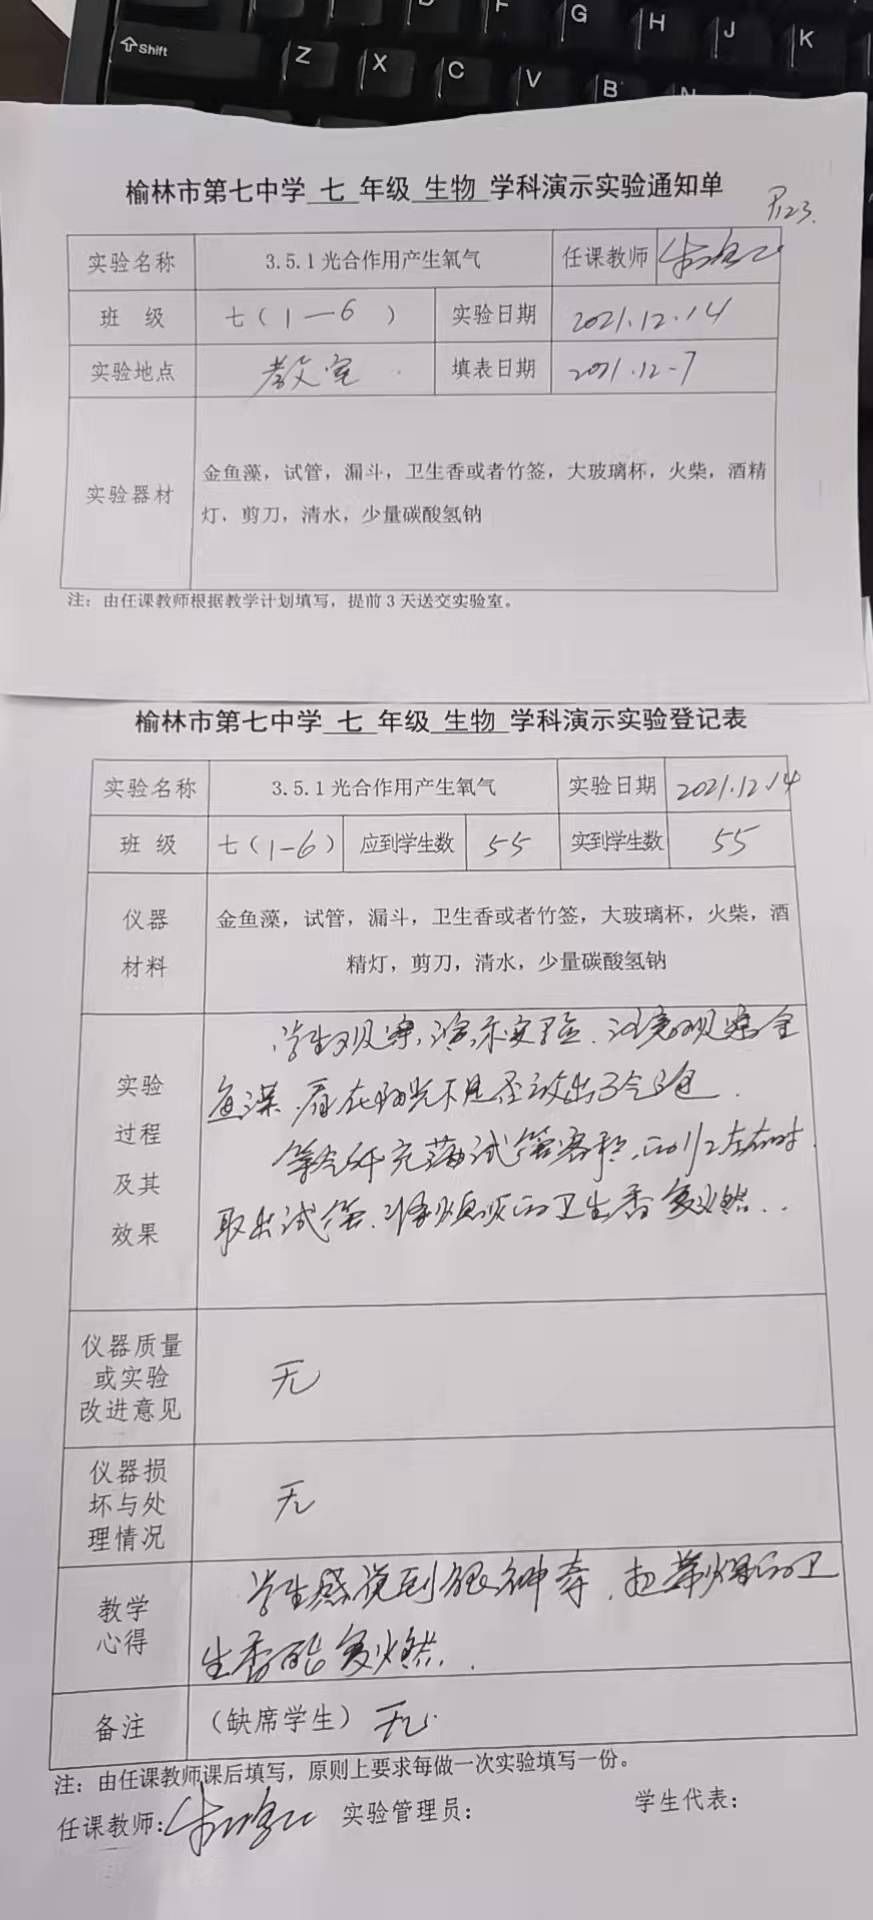 Shift Z X C V B N F G H J K
榆林市第七中学 七 年级 生物 学科演示实验通知单
P123.
实验名称 3.5.1光合作用产生氧气 任课教师
班 级 七（1—6） 实验日期 2021.12.14
实验地点 教室 填表日期 2021.12-7
实验器材 金鱼藻，试管，漏斗，卫生香或者竹签，大玻璃杯，火柴，酒精
灯，剪刀，清水，少量碳酸氢钠
注：由任课教师根据教学计划填写，提前3天送交实验室。
榆林市第七中学 七 年级 生物 学科演示实验登记表
实验名称 3.5.1光合作用产生氧气 实验日期 2021.12.14
班 级 七（1-6） 应到学生数 55 实到学生数 55
仪器
材料
金鱼藻，试管，漏斗，卫生香或者竹签，大玻璃杯，火柴，酒
精灯，剪刀，清水，少量碳酸氢钠
实验
过程
及其
效果
学生观察演示实验.注意观察金
鱼藻.看在阳光下是否放出了气泡.
等气体充满试管容积的1/2左右时.
取出试管.将快熄灭的卫生香复燃..
仪器质量
或实验
改进意见
无
仪器损
坏与处
理情况
无
教学
心得
学生感觉到很神奇.把带火星的卫
生香能复燃..
备注 （缺席学生）无.
注：由任课教师课后填写，原则上要求每做一次实验填写一份。
任课教师： 实验管理员： 学生代表：